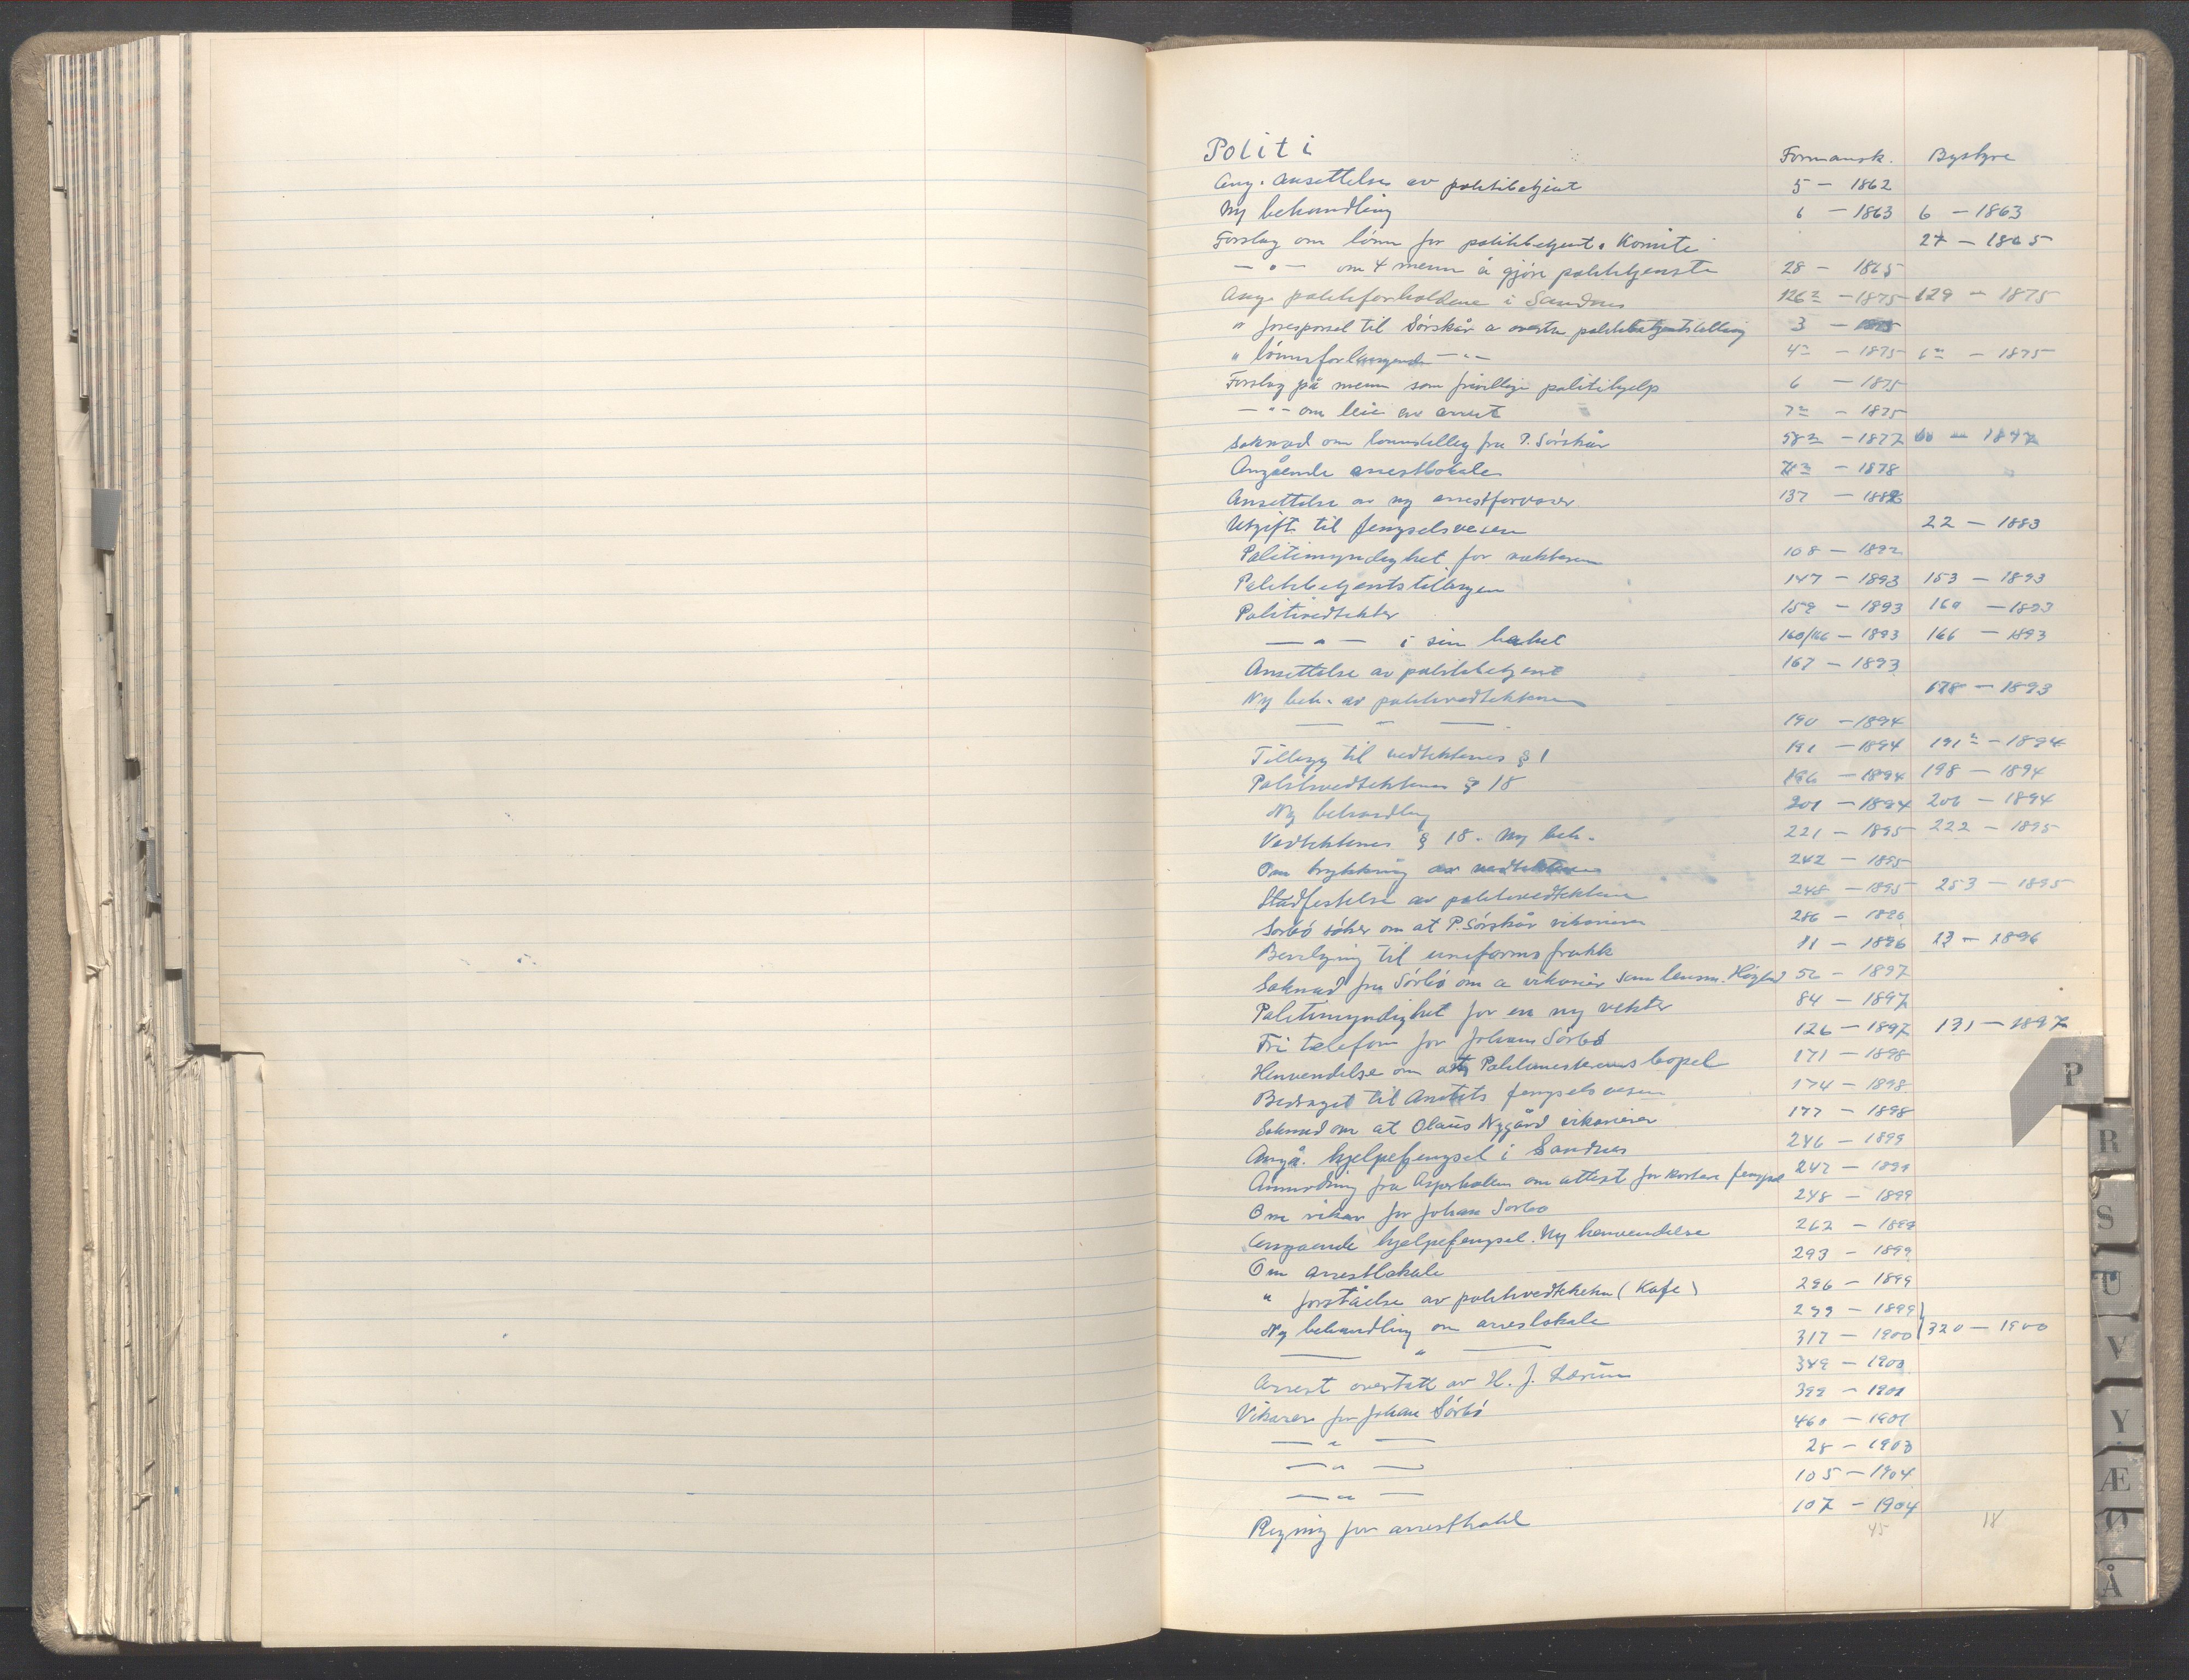 Politi
Formansk. Bystyre
Ang. Ansettelse av politibetjent 5 - 1862
Ny behandling 6 - 1863 6 - 1863
Forslag om lönn for politibetjent. Komite 27 - 1865
- " - om 4 menn å gjöre polititjenste 28 - 1865
Ang. politiforholdene i Sandnes 126 - 1875 129 - 1875
" foresporsel til Sörskår a overta politibetjentstilling 3 -
" lönnsforlangende - " - 4 - 1875 6 - 1875
Forslag på menn som frivillige politihjelp 6 - 1875
- " - om leie av arrest 7 - 1875
Soknad om lonnstillegg fra P. Sörskår 58 - 1877 60 - 1877
Angående arrestlokale - 1878
Ansettelse av ny arrestforvarer 137 -
Utgift til fengselsvesen 22 - 1883
Politimyndighet for vekteren 108 - 1892
Politibetjentstillingen 147 - 1893 153 - 1893
Politivedtekter 159 - 1893 160 - 1893
- " - i sin helhet 160/166 - 1893 166 - 1893
Ansettelse av politibetjent 167 - 1893
Ny beh. av politivedtektene 178 - 1893
- " - 190 - 1894
Tillegg til vedtektenes § 1 191 - 1894 191 - 1894
Politivedtektenes § 18 196 - 1894 198 - 1894
Ny behandling 201 - 1894 206 - 1894
Vedtektenes § 18. Ny beh. 221 - 1895 222 - 1895
Om trykking av vedtektene 242 - 1895
Stadfestelse av politivedtektene 248 - 1895 253 - 1895
Sorbö söker om at P. Sörskår vikarierer 286 - 1896
Bevilgning til uniformsfrakk 11 - 1896 13 - 1896
Soknad fra Sörbö om a vikarier som lensm. Högland 52 - 1897
Politimyndighet for en ny vekter 84 - 1897
Fri telefon for Johan Sörbö 126 - 1897 131 - 1897
Henvendelse om Politimesterens bopel 171 - 1898
Bidraget til Amtets fengselsvesen 174 - 1898
Soknad om at Olaus Nygård vikarierer 177 - 1898
Angå. hjelpefengsel i Sandnes 246 - 1899
Anmodning fra Asperholm om attest for kortere fengsel 247 - 1899
Om vikar for Johan Sorbo 248 - 1899
Angaende hjelpefengsel. Ny henvendelse 262 - 1899
Om arrestlokale 293 - 1899
" forståelse av politivedtektene (Kafe) 296 - 1899
Ny behandling om arrestlokale 299 - 1899
- " - 317 - 1900 320 - 1900
Arrest overtatt av H. J. Lærum 349 - 1900
Vikarer for Johan Sörbö 399 - 1901
- " - 460 - 1901
- " - 28 - 1903
- " - 105 - 1904
Regning for arresthold 107 - 1904
45 18
P
R
S
U
V
Y
Æ
Ø
Å